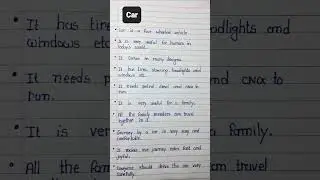 Car
Car is a four wheeled vehicle.
It is very useful for humans in
today's world.
It comes in many designs.
It has tires, steering, headlights and
windows etc.
It needs petrol, diesel and CNG to
run.
It is very useful for a family.
All the family members can travel
together in it.
Journey by a car is very easy and
comfortable.
It makes our journey safer, fast and
joyful.
should drive the car very
carefully.
It has tire
windows etc
It needs p
run.
It is very
All the fam
headlights and
and CNG to
a family.
can travel